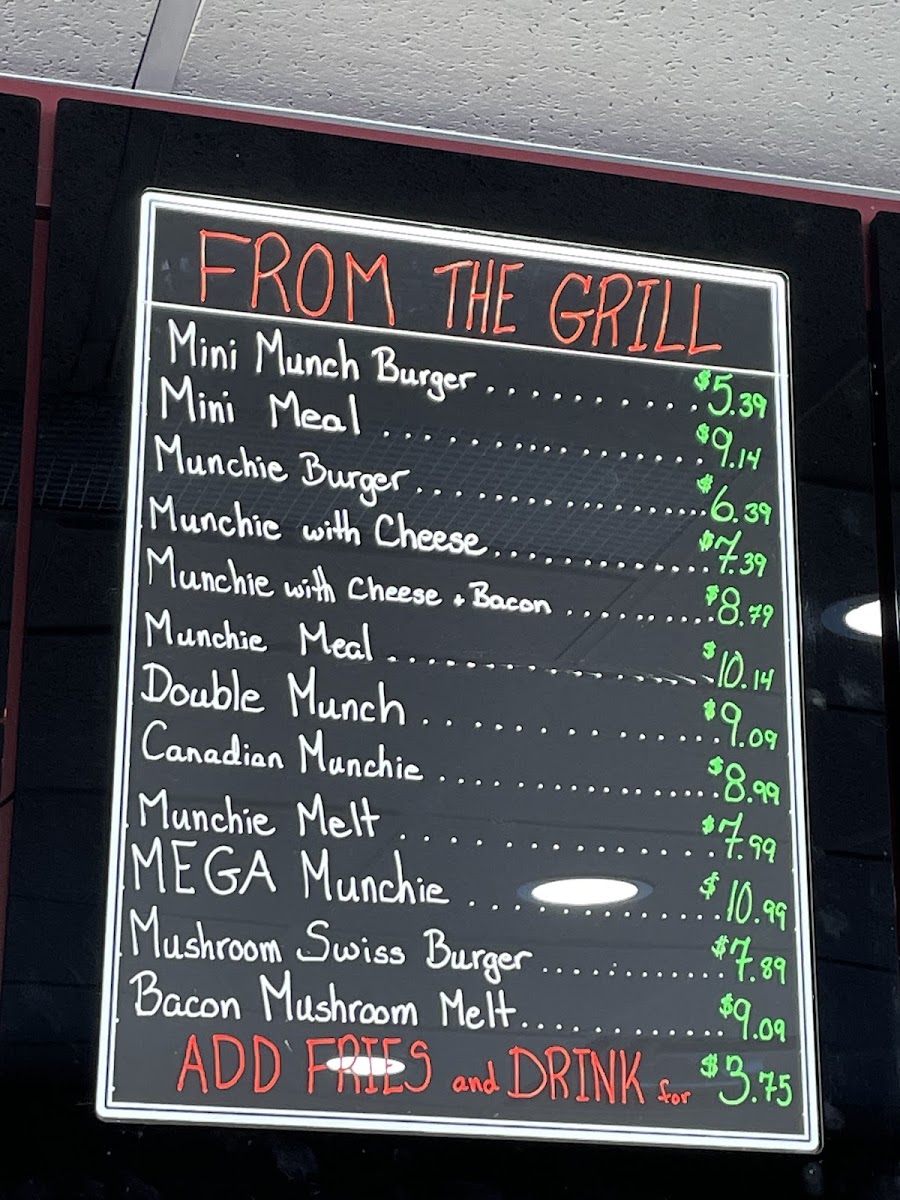 FROM THE GRILL
Mini Munch Burger .......... $5.39
Mini Meal .............. $9.14
Munchie Burger ............. $6.39
Munchie with Cheese.......... $7.39
Munchie with Cheese + Bacon ......... $8.79
Munchie Meal ................ $10.14
Double Munch ............. $9.09
Canadian Munchie ............... $8.99
Munchie Melt .............. $7.99
MEGA Munchie ............ $10.99
Mushroom Swiss Burger ........... $7.89
Bacon Mushroom Melt............ $9.09
ADD FRIES and DRINK for $3.75